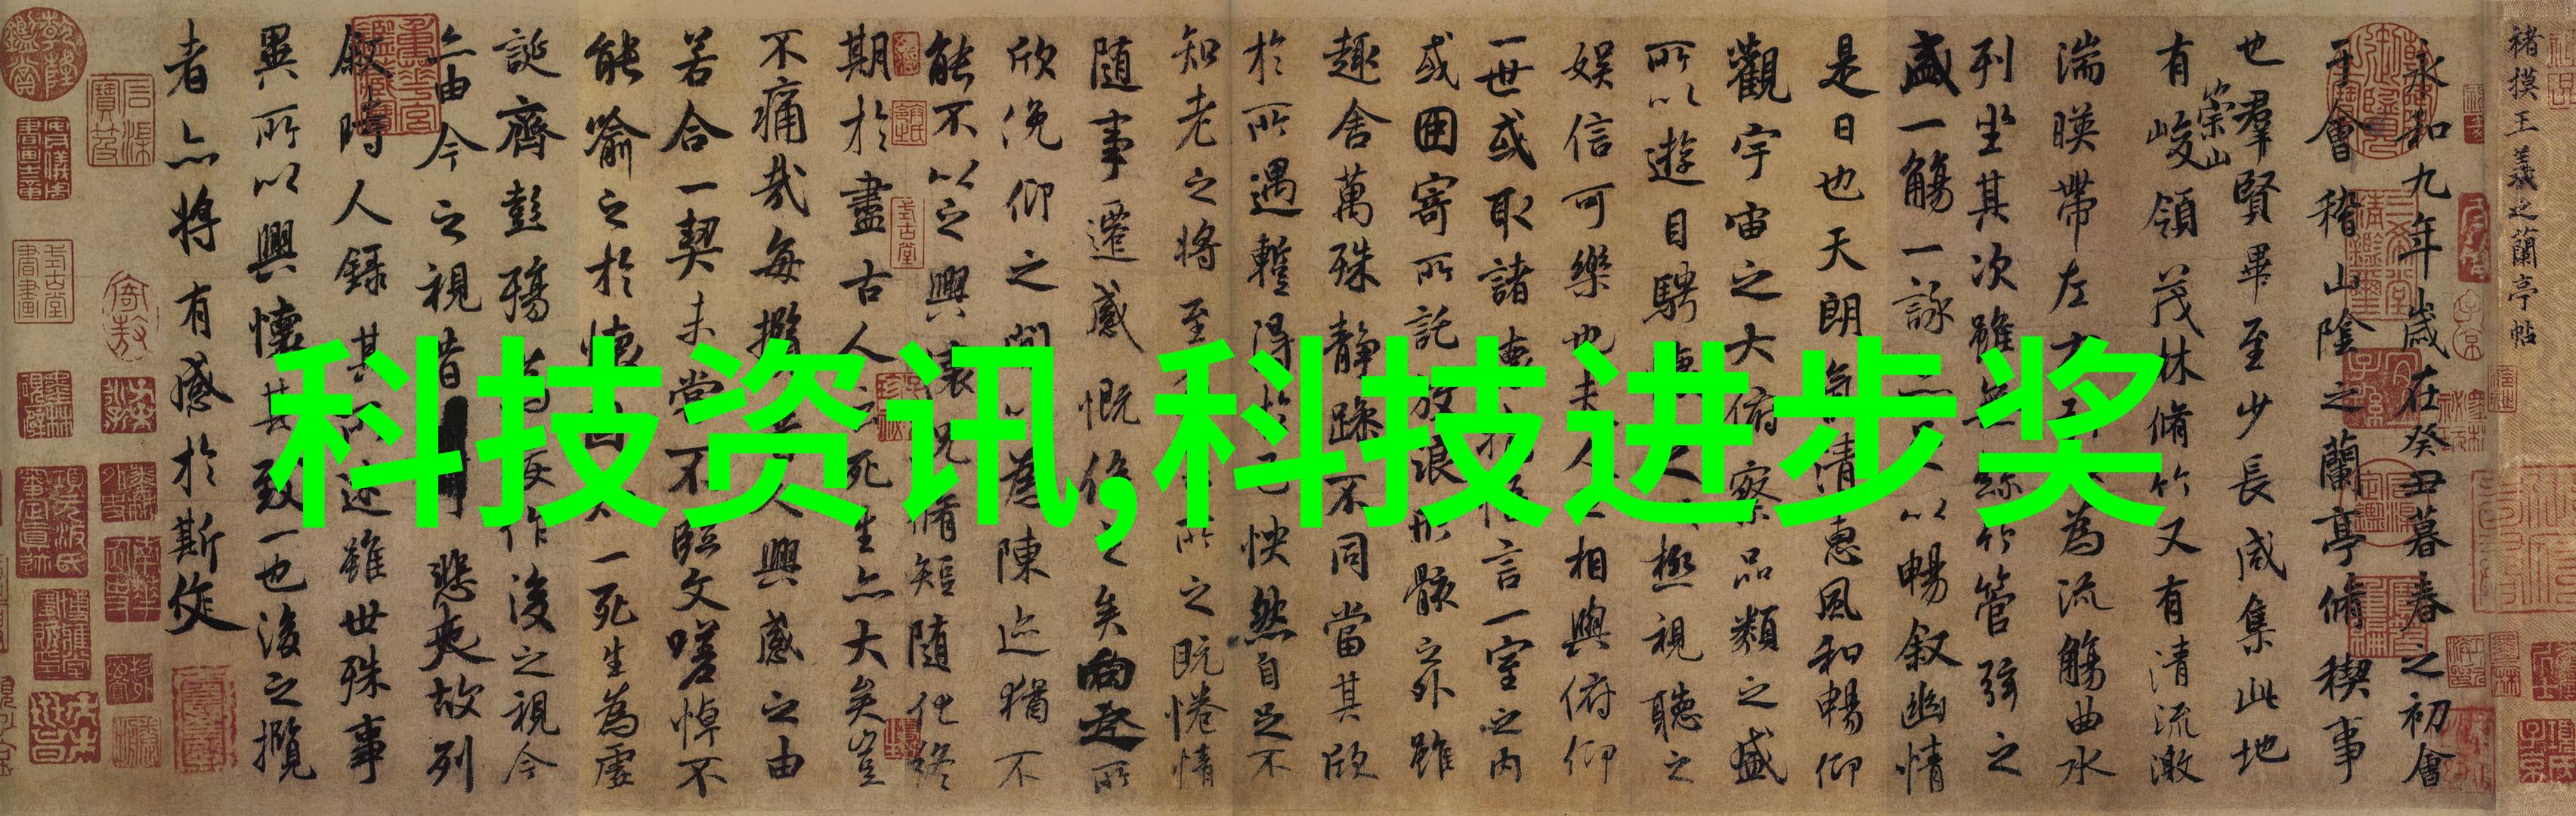 科技资讯,科技进步奖
褚摸王羲之蘭亭帖
永和九年歲在癸丑暮春之初會
于會稽山陰之蘭亭脩稧事
也羣賢畢至少長咸集此地
有崇山峻領茂林脩竹又有清流激
湍暎帶左右為流觴曲水
列坐其次雖無絲竹管弦之
盛一觴一詠亦足以暢叙幽情
是日也天朗氣清惠風和暢仰
觀宇宙之大俯察品類之盛
所以遊目騁懷足以極視聽之
娛信可樂也夫人之相與俯仰
一世或取諸懷抱悟言一室之內
或因寄所託放浪形骸之外雖
趣舍萬殊靜躁不同當其欣
於所遇蹔得於己怏然自足不
知老之將至及其所之既惓情
隨事遷感慨係之矣向之所
欣俛仰之間以為陳迹猶不
能不以之興懷況脩短隨化終
期於盡古人云死生亦大矣豈
不痛哉每攬昔人興感之由
若合一契未嘗不臨文嗟悼不
能喻之於懷固知一死生為虛
誕齊彭殤為妄作後之視今
亦由今之視昔悲夫故列
叙時人錄其所述雖世殊事
異所以興懷其致一也後之攬
者亦將有感於斯文